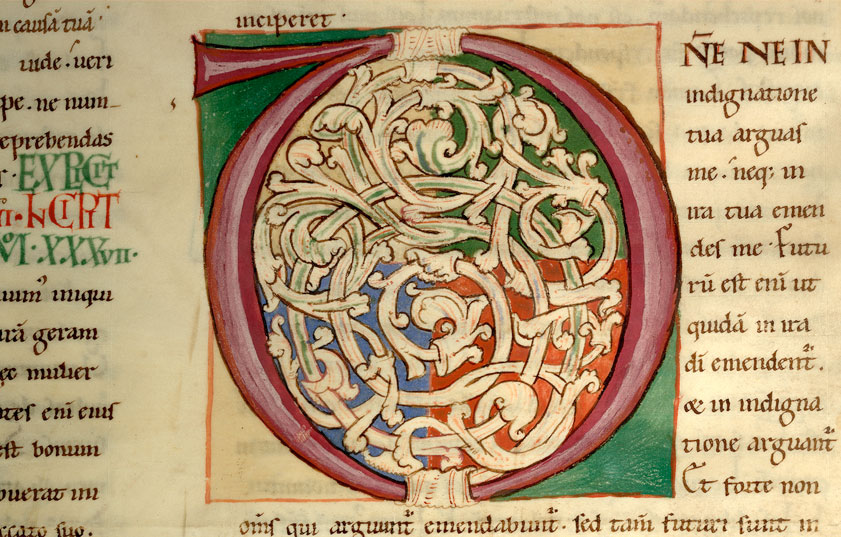 in causā tuā·
iude· ueri
pe· ne num
reprehendas
EXPLICIT
INCIPIT
XXXVII·
iniqui
geram
mulier
eni eius
est bonum
mi
suo.
inciperet·
D
NE NE IN
indignatione
tua arguas
me· neq; in
ira tua emen
des me· Futu
rū est enī ut
quidā in ira
dī emendent·
& in indigna
tione arguant·
Et forte non
oms qui arguunt emendabunt· sed tam futuri sunt in